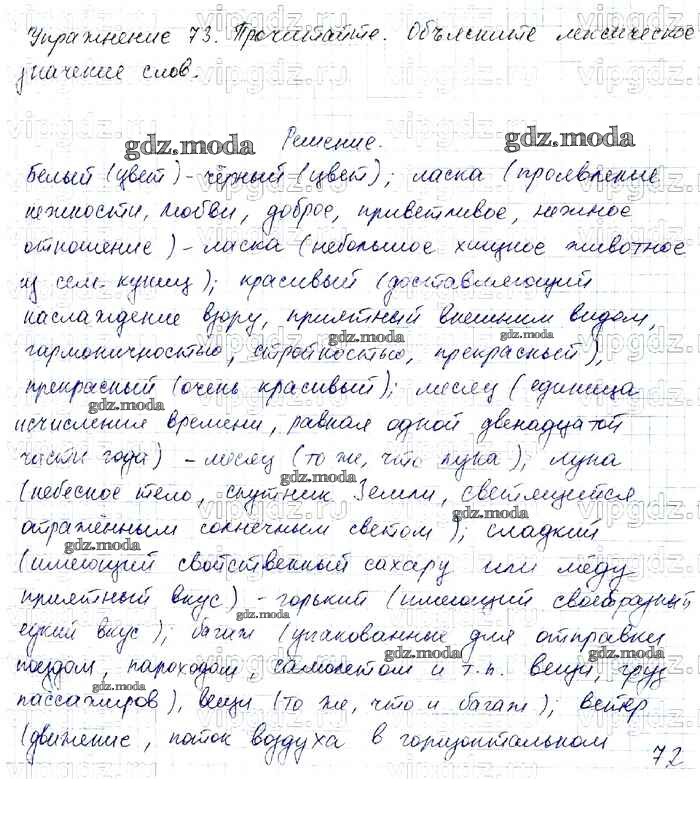 Упражнение 73. Прочитайте. Объясните лексическое
значение слов.
Решение.
Белый (цвет) - чёрный (цвет); ласка (проявление
нежности, любви, доброе, приветливое, нежное
отношение) - ласка (небольшое хищное животное
из сем. куниц); красивый (доставляющий
наслаждение взору, приятный внешним видом,
гармоничностью, стройностью, прекрасный),
прекрасный (очень красивый); месяц (единица
исчисления времени, равная одной двенадцатой
части года) - месяц (то же, что луна); луна
(небесное тело, спутник Земли, светящийся
отражённым солнечным светом); сладкий
(имеющий свойственный сахару или мёду
приятный вкус) - горький (имеющий своеобразный
едкий вкус); багаж (упакованные для отправки
поездом, пароходом, самолетом и т.п. вещи, груз
пассажиров), вещи (то же, что и багаж); ветер
(движение, поток воздуха в горизонтальном
72